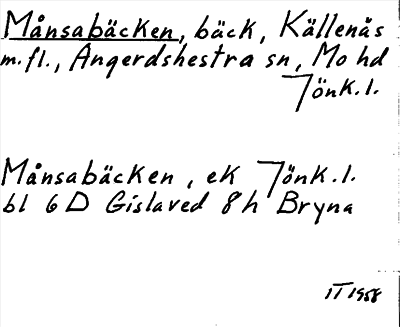 Månsabäcken, bäck, Källenås
m.fl., Angerdshestra sn, Mo hd
Jönk.l.
Månsabäcken, ek Jönk.l.
bl 6D Gislaved 8h Bryna
IT 1958